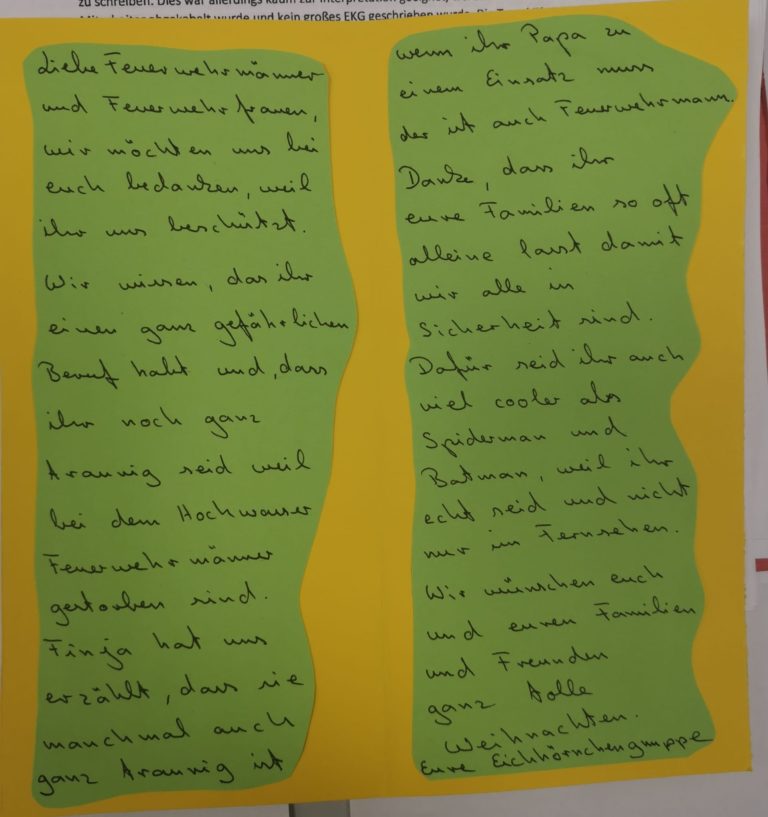 zu schreiben. Dies war allerdings kaum zur Interpretation geeignet,
wurde und kein großes EKG geschrieben wurde.
Liebe Feuerwehrmänner
und Feuerwehrfrauen,
wir möchten uns bei
euch bedanken, weil
ihr uns beschützt.
Wir wissen, das ihr
einen ganz gefährlichen
Beruf habt und, dass
ihr noch ganz
traurig seid weil
bei dem Hochwasser
Feuerwehrmänner
gestorben sind.
Finja hat uns
erzählt, dass sie
manchmal auch
ganz traurig ist
wenn ihr Papa zu
einem Einsatz muss
der ist auch Feuerwehrmann.
Danke, dass ihr
eure Familien so oft
alleine lasst damit
wir alle in
Sicherheit sind.
Dafür seid ihr auch
viel cooler als
Spiderman und
Batman, weil ihr
echt seid und nicht
nur im Fernsehen.
Wir wünschen euch
und euren Familien
und Freunden
ganz tolle
Weihnachten.
Eure Eichhörnchengruppe